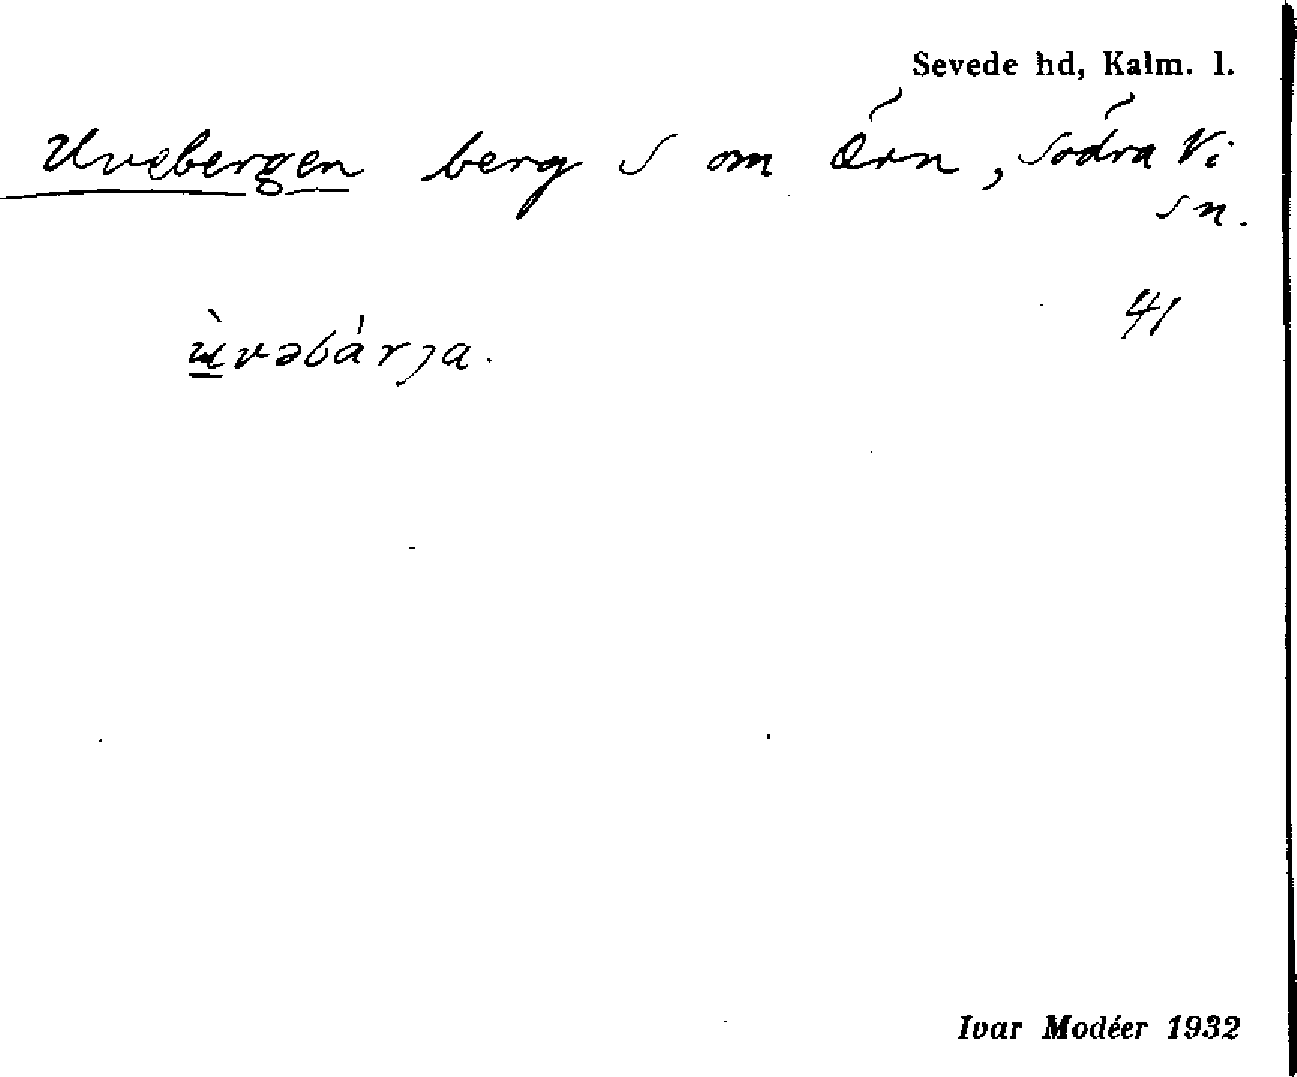 Sevede hd, Kalm. l.
Uvebergen berg S om Örn, Södra Vi
sn.
41
ùvəbárja.
Ivar Modéer 1932